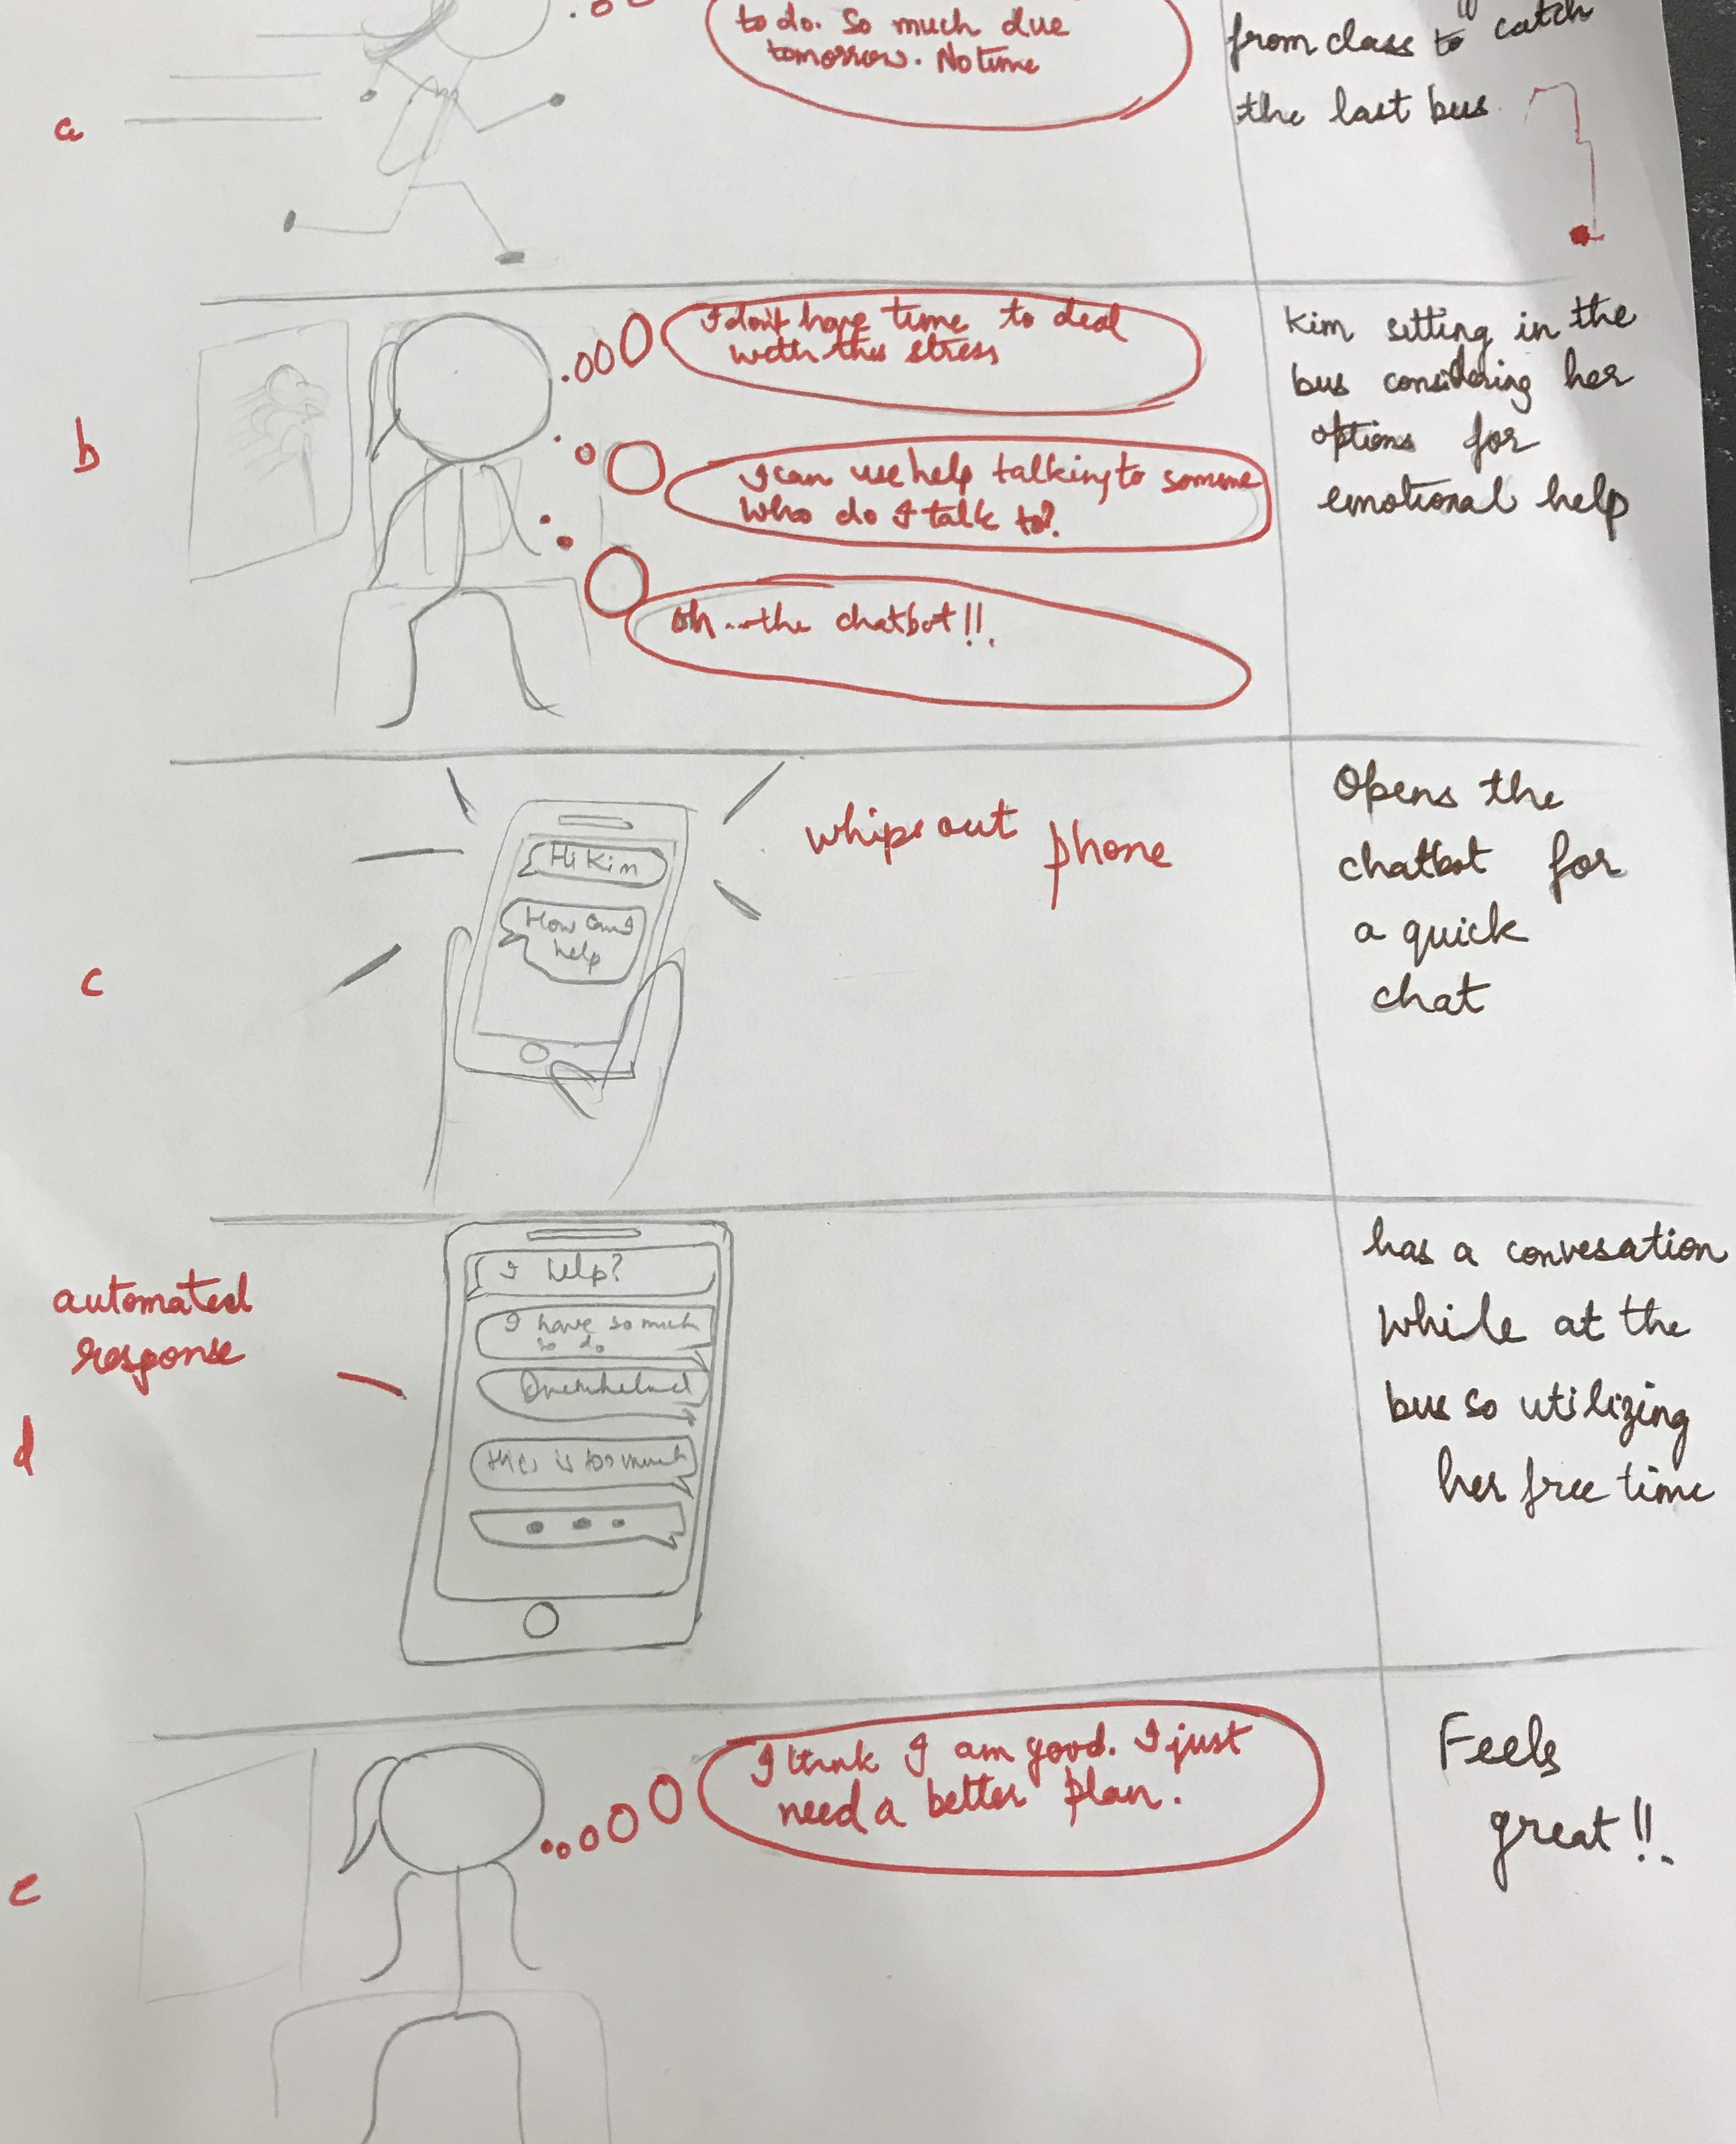 to do. So much due
tomorrow. No time
from class to catch
the last bus
a
I don't have time to deal
with this stress
I can use help talking to someone
who do I talk to?
Oh...the chatbot!!.
Kim sitting in the
bus considering her
options for
emotional help
b
Hi Kim
How can I
help
whips out phone
Opens the
chatbot for
a quick
chat
c
automated
response
I help?
I have so much
to do
this is too much
has a convesation
while at the
bus so utilizing
her free time
d
I think I am good. I just
need a better plan.
Feels
great!!.
e